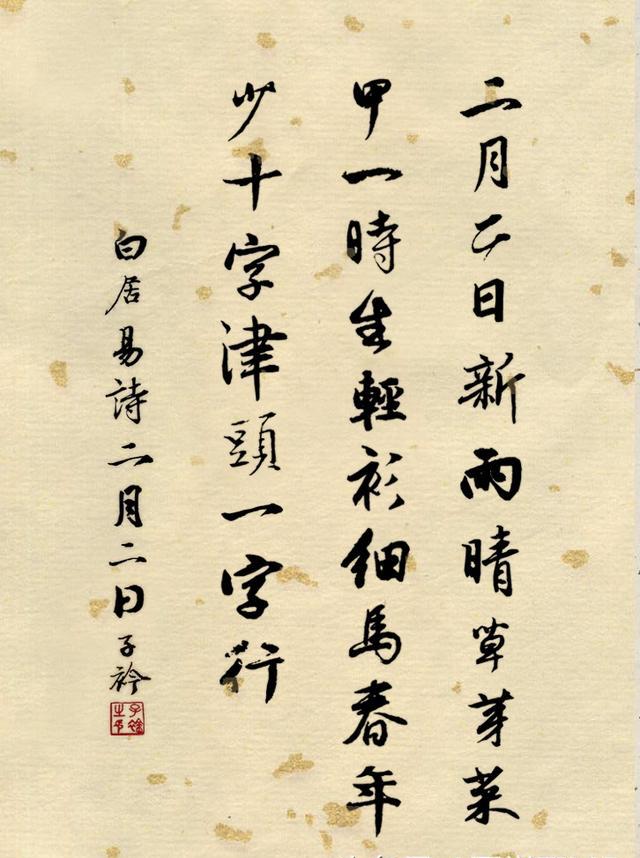 二月二日新雨晴草芽菜
甲一時生輕衫細馬春年
少十字津頭一字行
白居易詩二月二日子衿